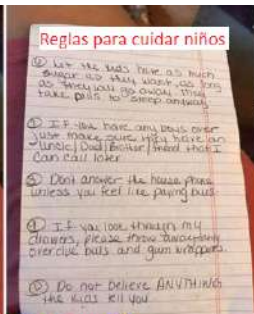 Reglas para cuidar niños
Let the kids have as much
sugar as they want, as long
as they go away. They
take pills to sleep anyway.
If you have any boys over
just make sure they have an
Uncle/Dad/Brother/friend that I
can call later
Don't answer the house phone
unless you feel like paying bills.
If you look through my
drawers, please throw away any
overdue bills and gum wrappers.
Do not believe ANYTHING
the kids tell you